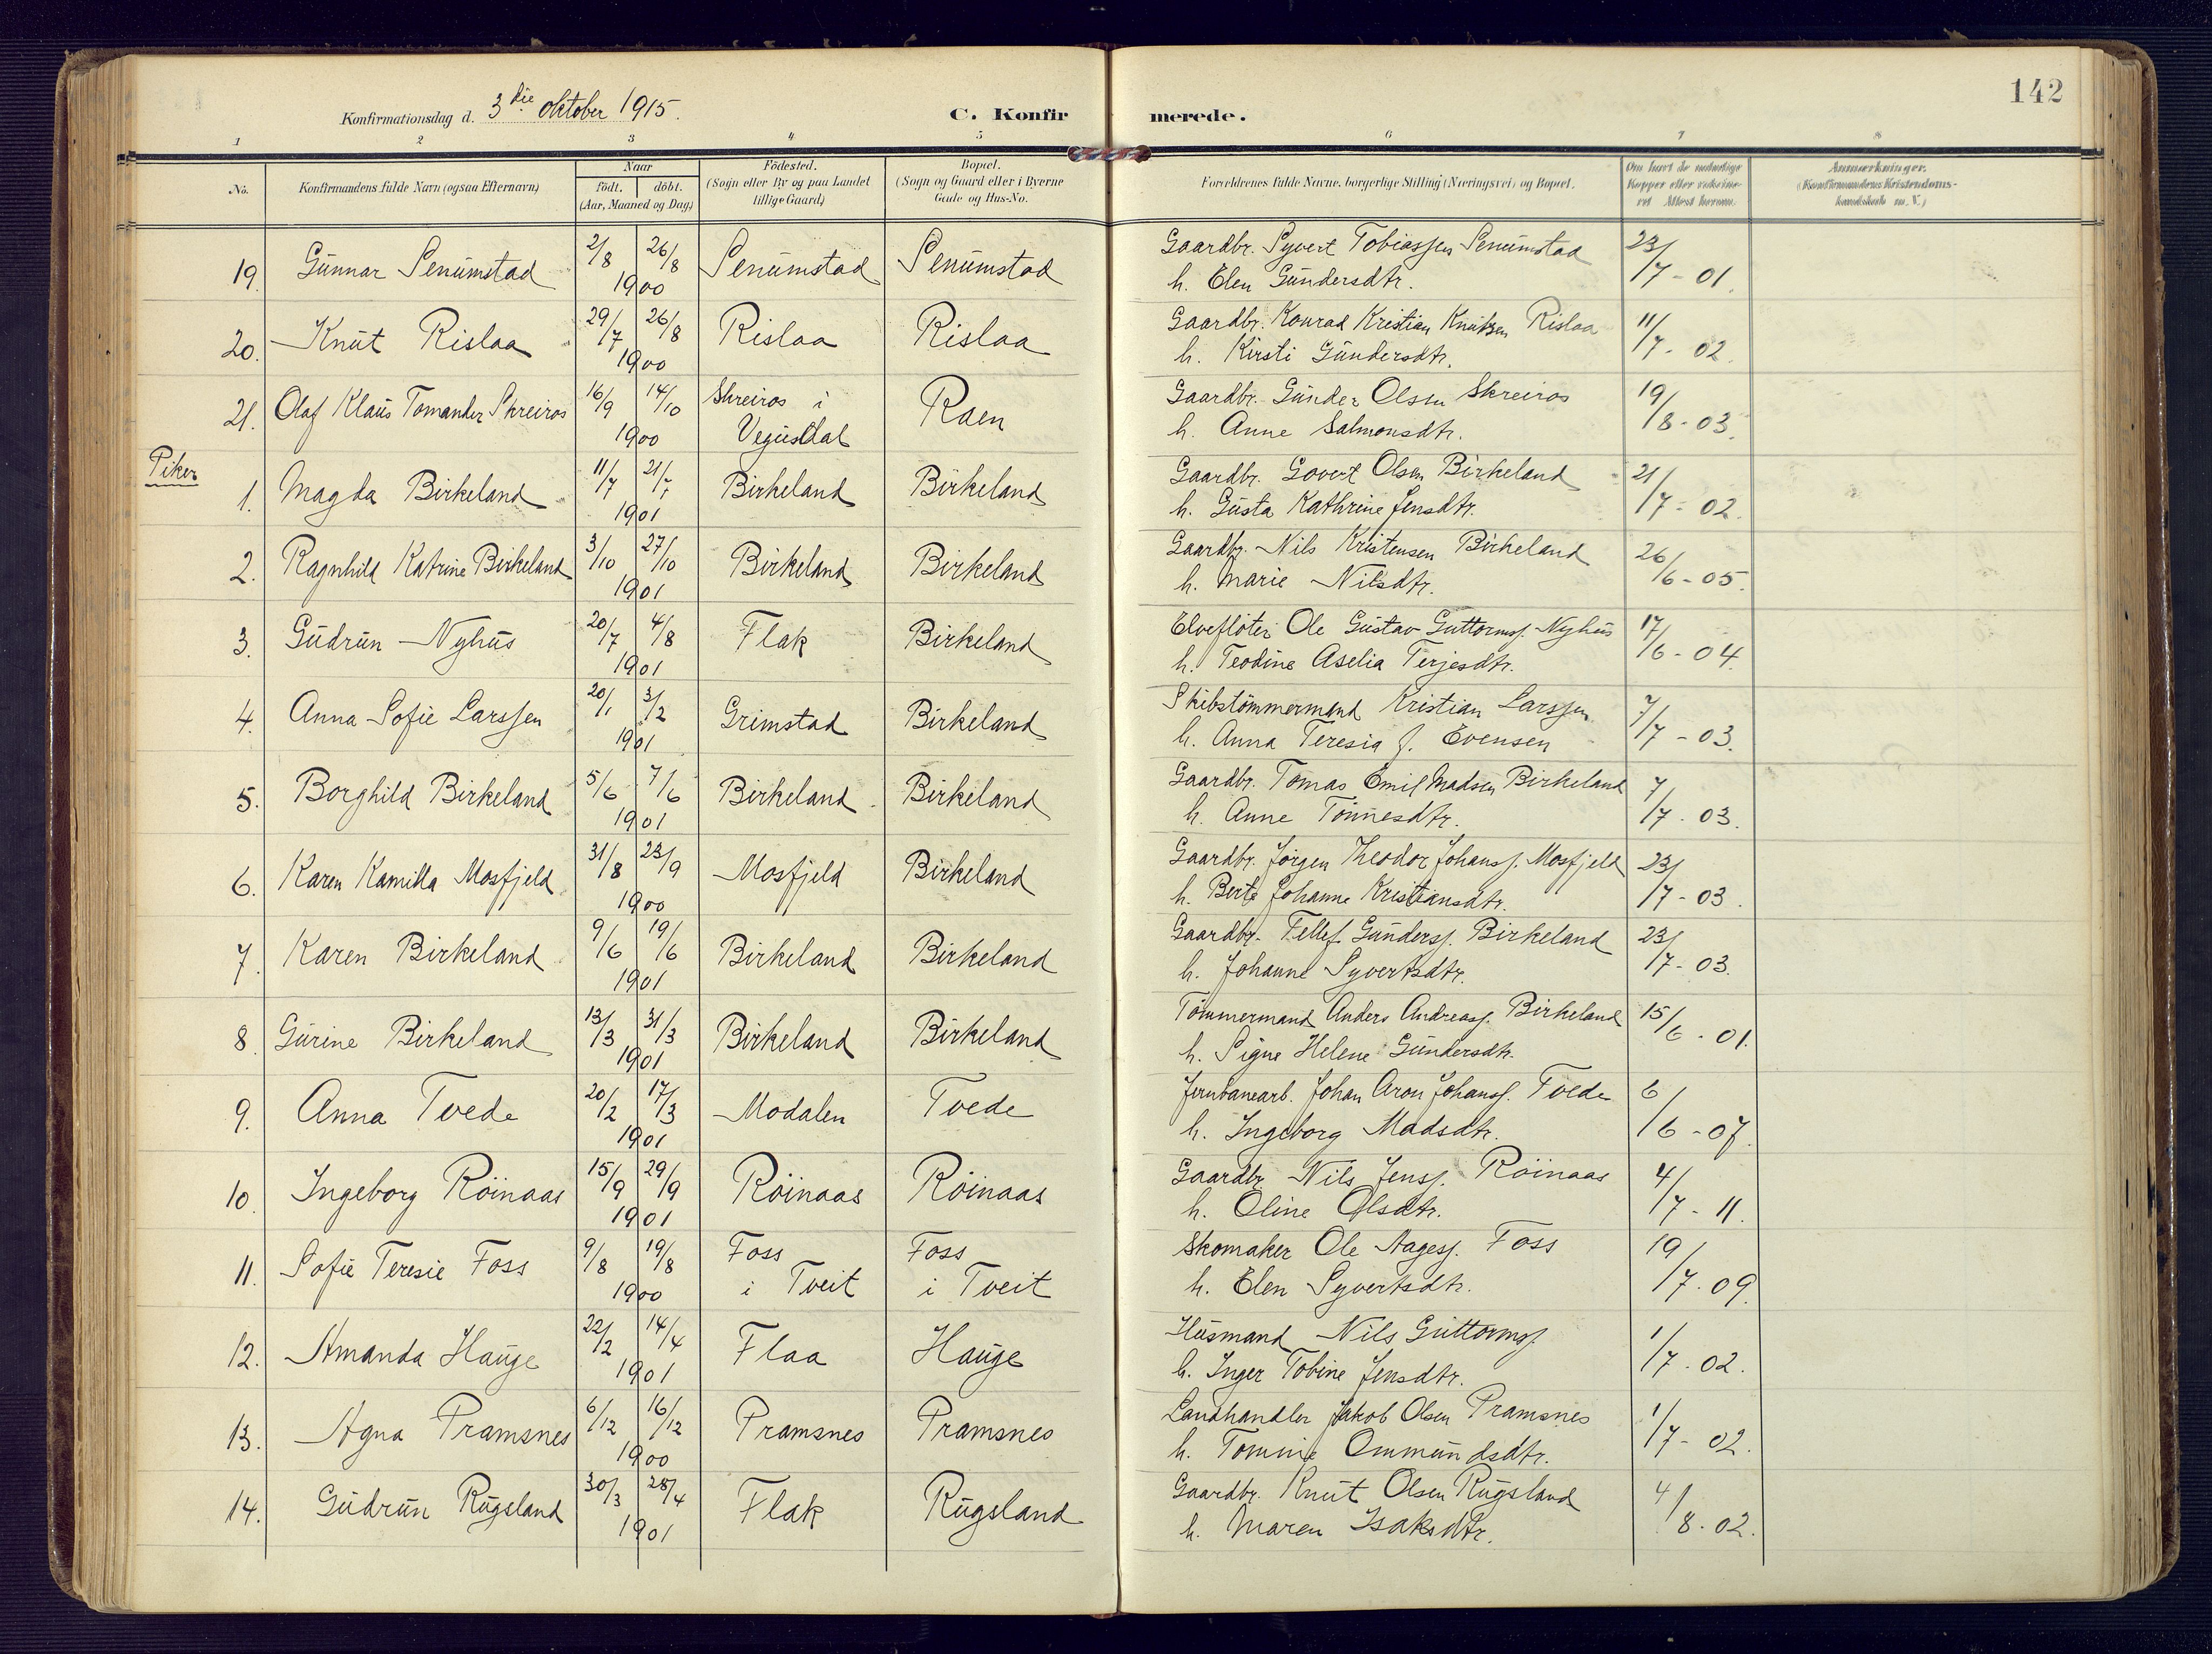 142
Konfirmationsdag d. 3die oktober 1915.
C. Konfirmerede.
1 2 3 4 5 6 7 8
No. Konfirmandens fulde Navn (ogsaa Efternavn) Naar födt. döbt. (Aar, Maaned og Dag) Födested. (Sogn eller By og paa Landet tillige Gaard) Bopæl. (Sogn og Gaard eller i Byerne Gade og Hus-No. Forældrenes fulde Navne, borgerlige Stilling (Næringsvei) og Bopæl. Om havt de naturlige Kopper eller vaksineret. Attest herom. Anmærkninger. (Konfirmandens Kristendomskundskab m. V.)
19. Gunnar Senumstad 2/8 26/8 1900 Senumstad Senumstad Gaardbr. Syvert Tobiassen Senumstad 23/7 - 01.
h. Elen Gundersdtr.
20. Knut Rislaa 29/7 26/8 1900 Rislaa Rislaa Gaardbr. Konrad Kristian Knutsen Rislaa 11/7 - 02
h. Kirsti Gundersdtr.
21. Olaf Klaus Tomander Skreiros 16/9 14/10 1900 Skreiros i Vegusdal Raen Gaardbr. Gunder Olsen Skreiros 19/8 - 03.
h. Anne Salmonsdtr.
Piker
1. Magda Birkeland 11/7 21/7 1901 Birkeland Birkeland Gaardbr. Govert Olsen Birkeland 21/7 - 02.
h. Gusta Kathrine Jensdtr.
2. Ragnhild Katrine Birkeland 3/10 27/10 1901 Birkeland Birkeland Gaardbr. Nils Kristensen Birkeland 26/6 - 05.
h. Marie Nilsdtr.
3. Gudrun Nyhus 20/7 4/8 1901 Flak Birkeland Elvefløter Ole Gustav Guttormss. Nyhus 17/6 - 04.
h. Teodine Aselia Terjesdtr.
4. Anna Sofie Larssen 20/1 3/2 1901 Grimstad Birkeland Skibstömmermand Kristian Larssen 7/7 - 03.
h. Anna Teresia f. Evensen
5. Borghild Birkeland 5/6 7/6 1901 Birkeland Birkeland Gaardbr. Tomas Emil Madsen Birkeland 7/7 - 03.
h. Anne Tönnesdtr.
6. Karen Kamilla Mosfjeld 31/8 23/9 1900 Mosfjeld Birkeland Gaardbr. Jörgen Theodor Johanss. Mosfjeld 23/7 - 03.
h. Berte Johanne Kristiansdtr.
7. Karen Birkeland 9/6 19/6 1901 Birkeland Birkeland Gaardbr. Tellef Gunderss. Birkeland 23/7 - 03.
h. Johanne Syvertsdtr.
8. Gurine Birkeland 13/3 31/3 1901 Birkeland Birkeland Tömmermand Anders Andreass. Birkeland 15/6 - 01.
h. Signe Helene Gundersdtr.
9. Anna Tvede 20/2 17/3 1901 Modalen Tvede Jernbanearb. Johan Aron Johanss. Tvede 6/6 - 07.
h. Ingeborg Madsdtr.
10. Ingeborg Röinaas 15/9 29/9 1901 Röinaas Röinaas Gaardbr. Nils Jenss. Röinaas 4/7 - 11.
h. Oline Olsdtr.
11. Sofie Teresie Foss 9/8 19/8 1900 Foss i Tveit Foss i Tveit Skomaker Ole Aagess. Foss 19/7 - 09.
h. Elen Syvertsdtr.
12. Amanda Hauge 22/2 14/4 1901 Flaa Hauge Husmand Nils Guttormss. 1/7 - 02.
h. Inger Tobine Jensdtr.
13. Agna Pramsnes 6/12 16/12 1900 Pramsnes Pramsnes Landhandler Jakob Olsen Pramsnes 1/7 - 02.
h. Tomine Ommundsdtr.
14. Gudrun Rugsland 30/3 28/4 1901 Flak Rugsland Gaardbr. Knut Olsen Rugsland 4/8 - 02.
h. Maren Isaksdtr.